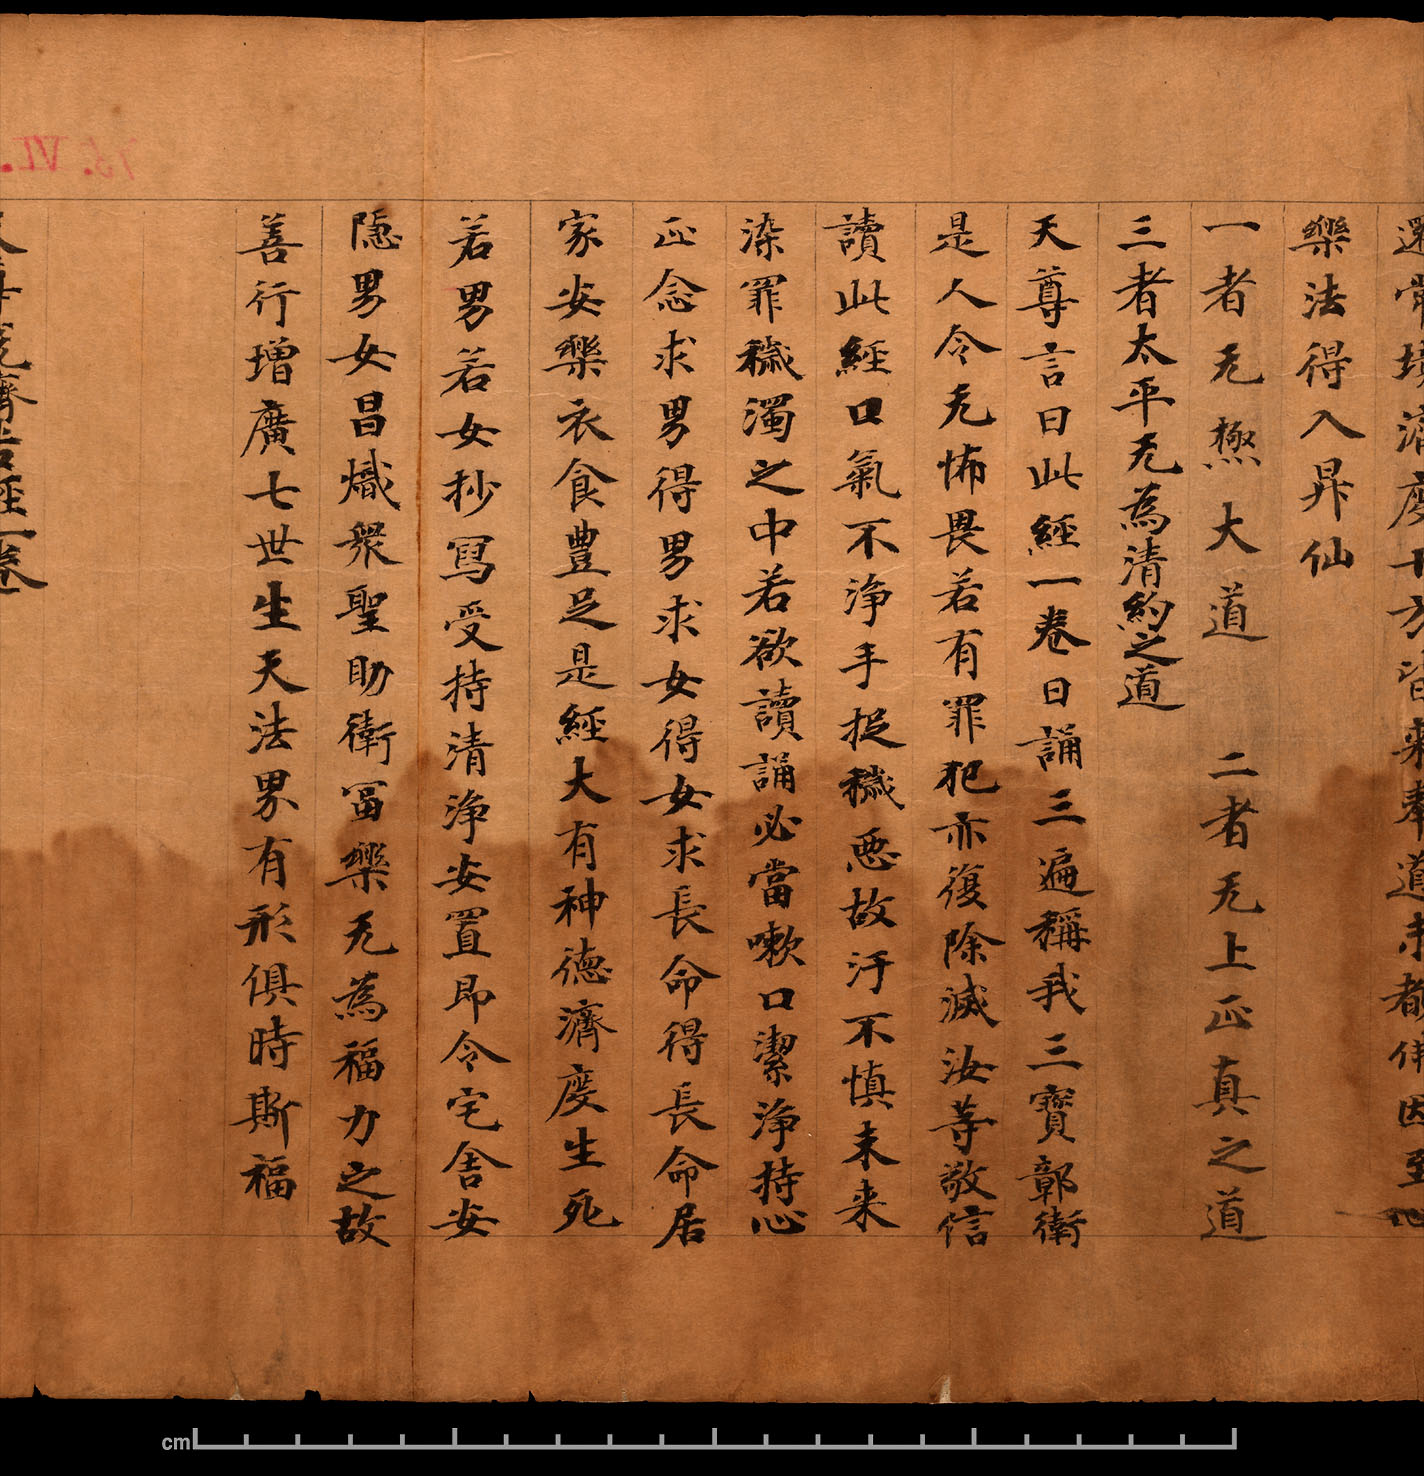 還常境濟度十方皆來奉道未都傳因至心
樂法得入昇仙
一者无極大道　二者无上正真之道
三者太平无為清約之道
天尊言曰此經一卷日誦三遍稱我三寶鄣衛
是人令无怖畏若有罪犯亦復除滅汝等敬信
讀此經口氣不淨手捉穢惡故汙不慎未來
染罪穢濁之中若欲讀誦必當嗽口潔淨持心
正念求男得男求女得女求長命得長命居
家安樂衣食豐足是經大有神德濟度生死
若男若女抄寫受持清淨安置即令宅舍安
隱男女昌熾眾聖助衛富樂无為福力之故
善行增廣七世生天法界有形俱時斯福
濟苦經一卷
75. VI.